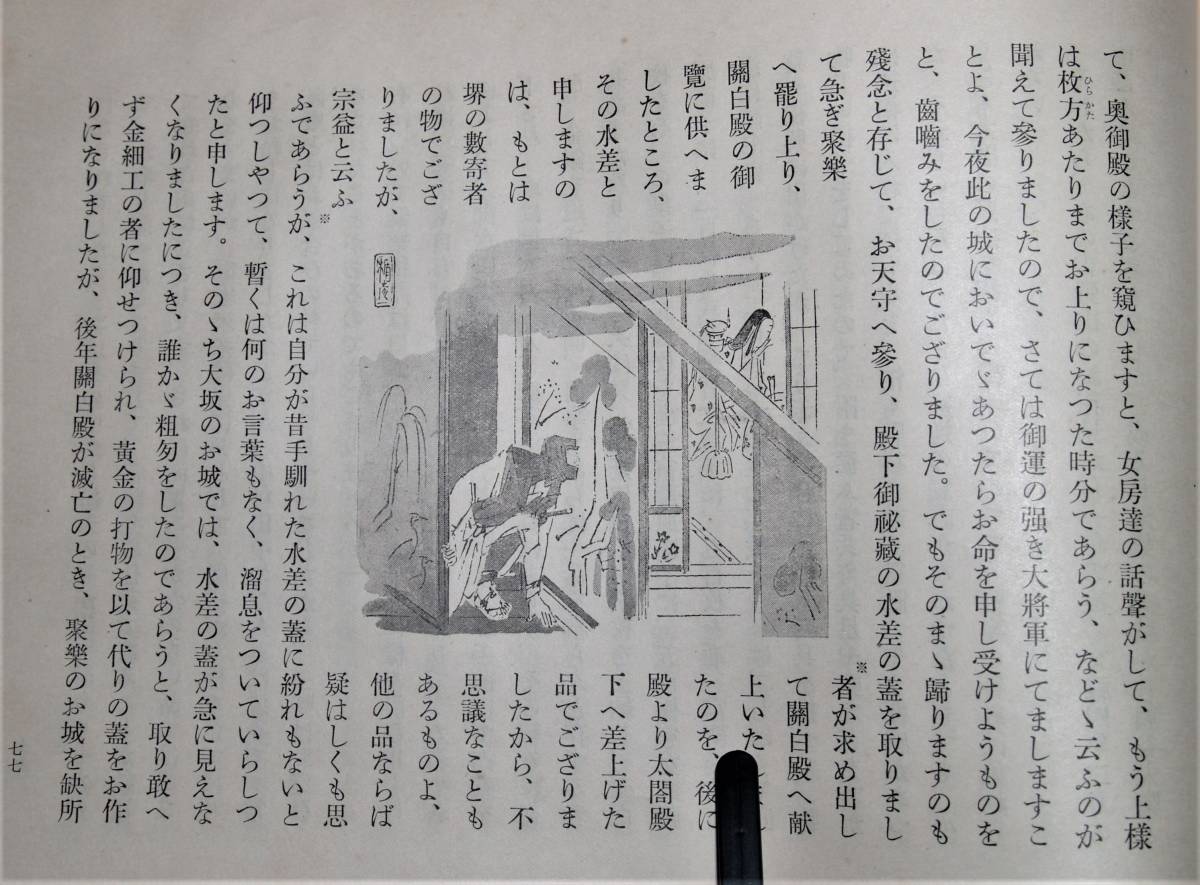 て、奥御殿の様子を窺ひますと、女房達の話聲がして、もう上様
は枚方あたりまでお上りになつた時分であらう、などゝ云ふのが
ひらかた
聞えて參りましたので、さては御運の强き大將軍にてましますこ
とよ、今夜此の城においでゞあつたらお命を申し受けようものを
と、齒嚙みをしたのでござりました。でもそのまゝ歸りますのも
殘念と存じて、お天守へ參り、殿下御祕藏の水差の蓋を取りまし
て急ぎ聚樂
へ罷り上り、
關白殿の御
覽に供へま
したところ、
その水差と
申しますの
は、もとは
堺の數寄者
の物でござ
りましたが、
宗益と云ふ
※
者が求め出し
て關白殿へ献
上いた
たのを、後に
殿より太閤殿
下へ差上げた
品でござりま
したから、不
思議なことも
あるものよ、
他の品ならば
疑はしくも思
※
ふであらうが、これは自分が昔手馴れた水差の蓋に紛れもないと
仰つしやつて、暫くは何のお言葉もなく、溜息をついていらしつ
たと申します。そのゝち大坂のお城では、水差の蓋が急に見えな
くなりましたにつき、誰かゞ粗匆をしたのであらうと、取り敢へ
ず金細工の者に仰せつけられ、黃金の打物を以て代りの蓋をお作
りになりましたが、後年關白殿が滅亡のとき、聚樂のお城を缺所
七七